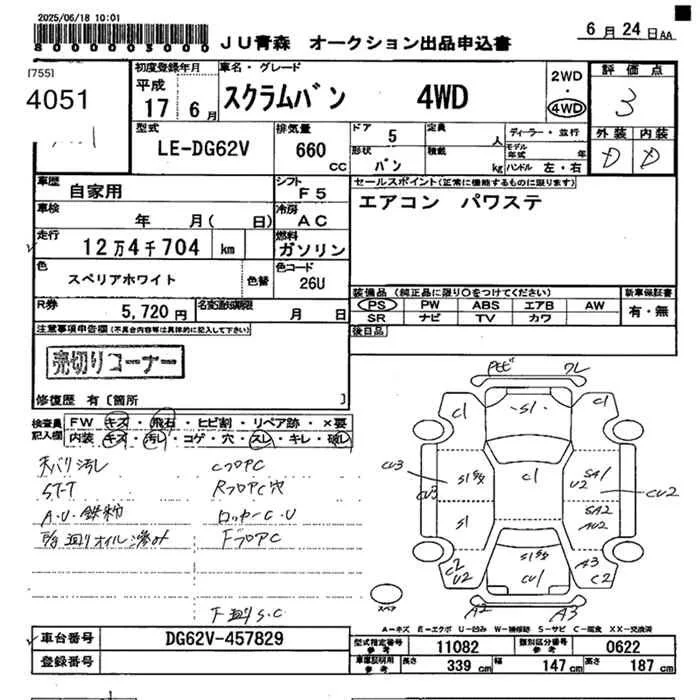 2025/06/18 10:01
8000003000
JU青森 オークション出品申込書
6月24日AA
[755]
4051
初度登録年月
平成
17年6月
車名・グレード
スクラムバン 4WD
2WD
・
4WD
評価点
3
外装 内装
D D
型式
LE-DG62V
排気量
660
CC
ドア 5
形状 バン
定員 人
積載 kg
ディーラー・並行
モデル年式 年
ハンドル 左・右
車歴 自家用
シフト F5
セールスポイント(正常に機能するものに限ります)
エアコン パワステ
車検 年 月( 日)
冷房 AC
走行 12万4千704 km
燃料 ガソリン
色 スペリアホワイト 色替
色コード 26U
装備品(純正品に限り○をつけてください)
新車保証書
PS PW ABS エアB AW
有・無
SR ナビ TV カワ
R券 5,720円
名変達成期限 月 日
後日品
注意事項申告欄(不具合内容等は具体的に記入して下さい)
売切りコーナー
修復歴 有〔箇所 〕
検査員記入欄
FW キズ・飛石・ヒビ割・リペア跡・×要
内装 キズ・汚レ・コゲ・穴・スレ・キレ・破レ
天バリ汚レ CフロアC
ST-T RフロアC穴
A.U・鉄粉 ロッカーC.U
FフロアC
下廻りS.C
C1 S1 C1
CU3 S1 C1 U2 CU2
S1 SA2 AU2
C2 U2 S1 CU1 A3 C2
スペア A2 A3
A-キズ E-エクボ U-凹み W-補修跡 S-サビ C-腐食 XX-交換済
車台番号 DG62V-457829
登録番号
型式指定番号 参考 11082
類別区分番号 参考 0622
車庫証明用 参考 長さ 339 cm 幅 147 cm 高さ 187 cm